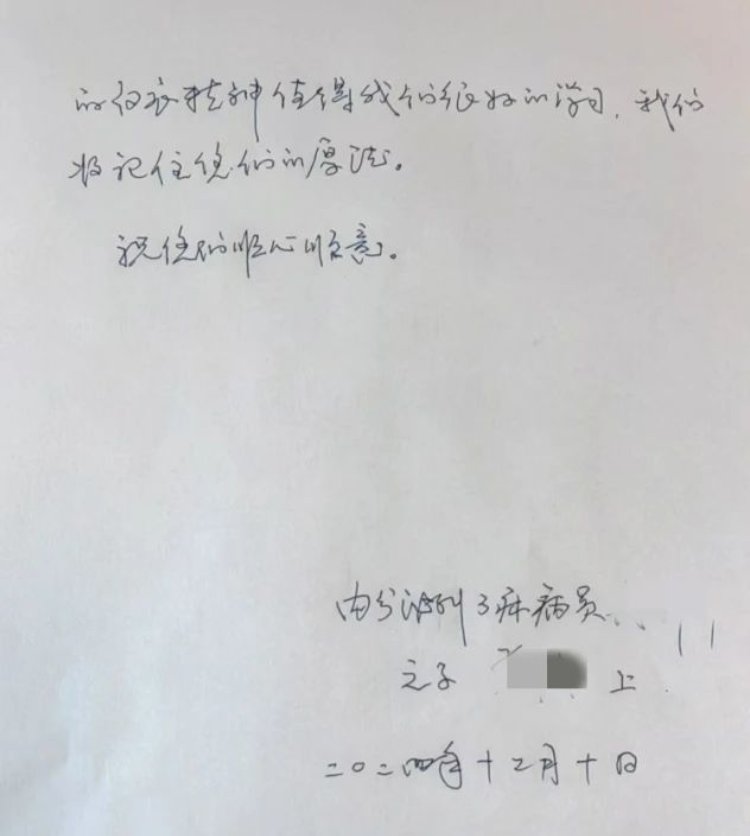 的敬业精神值得我们很好的学习，我们
将记住您们的厚德。
祝您们顺心顺意。
内分泌科3床病员
之子 上
二〇二四年十二月十日